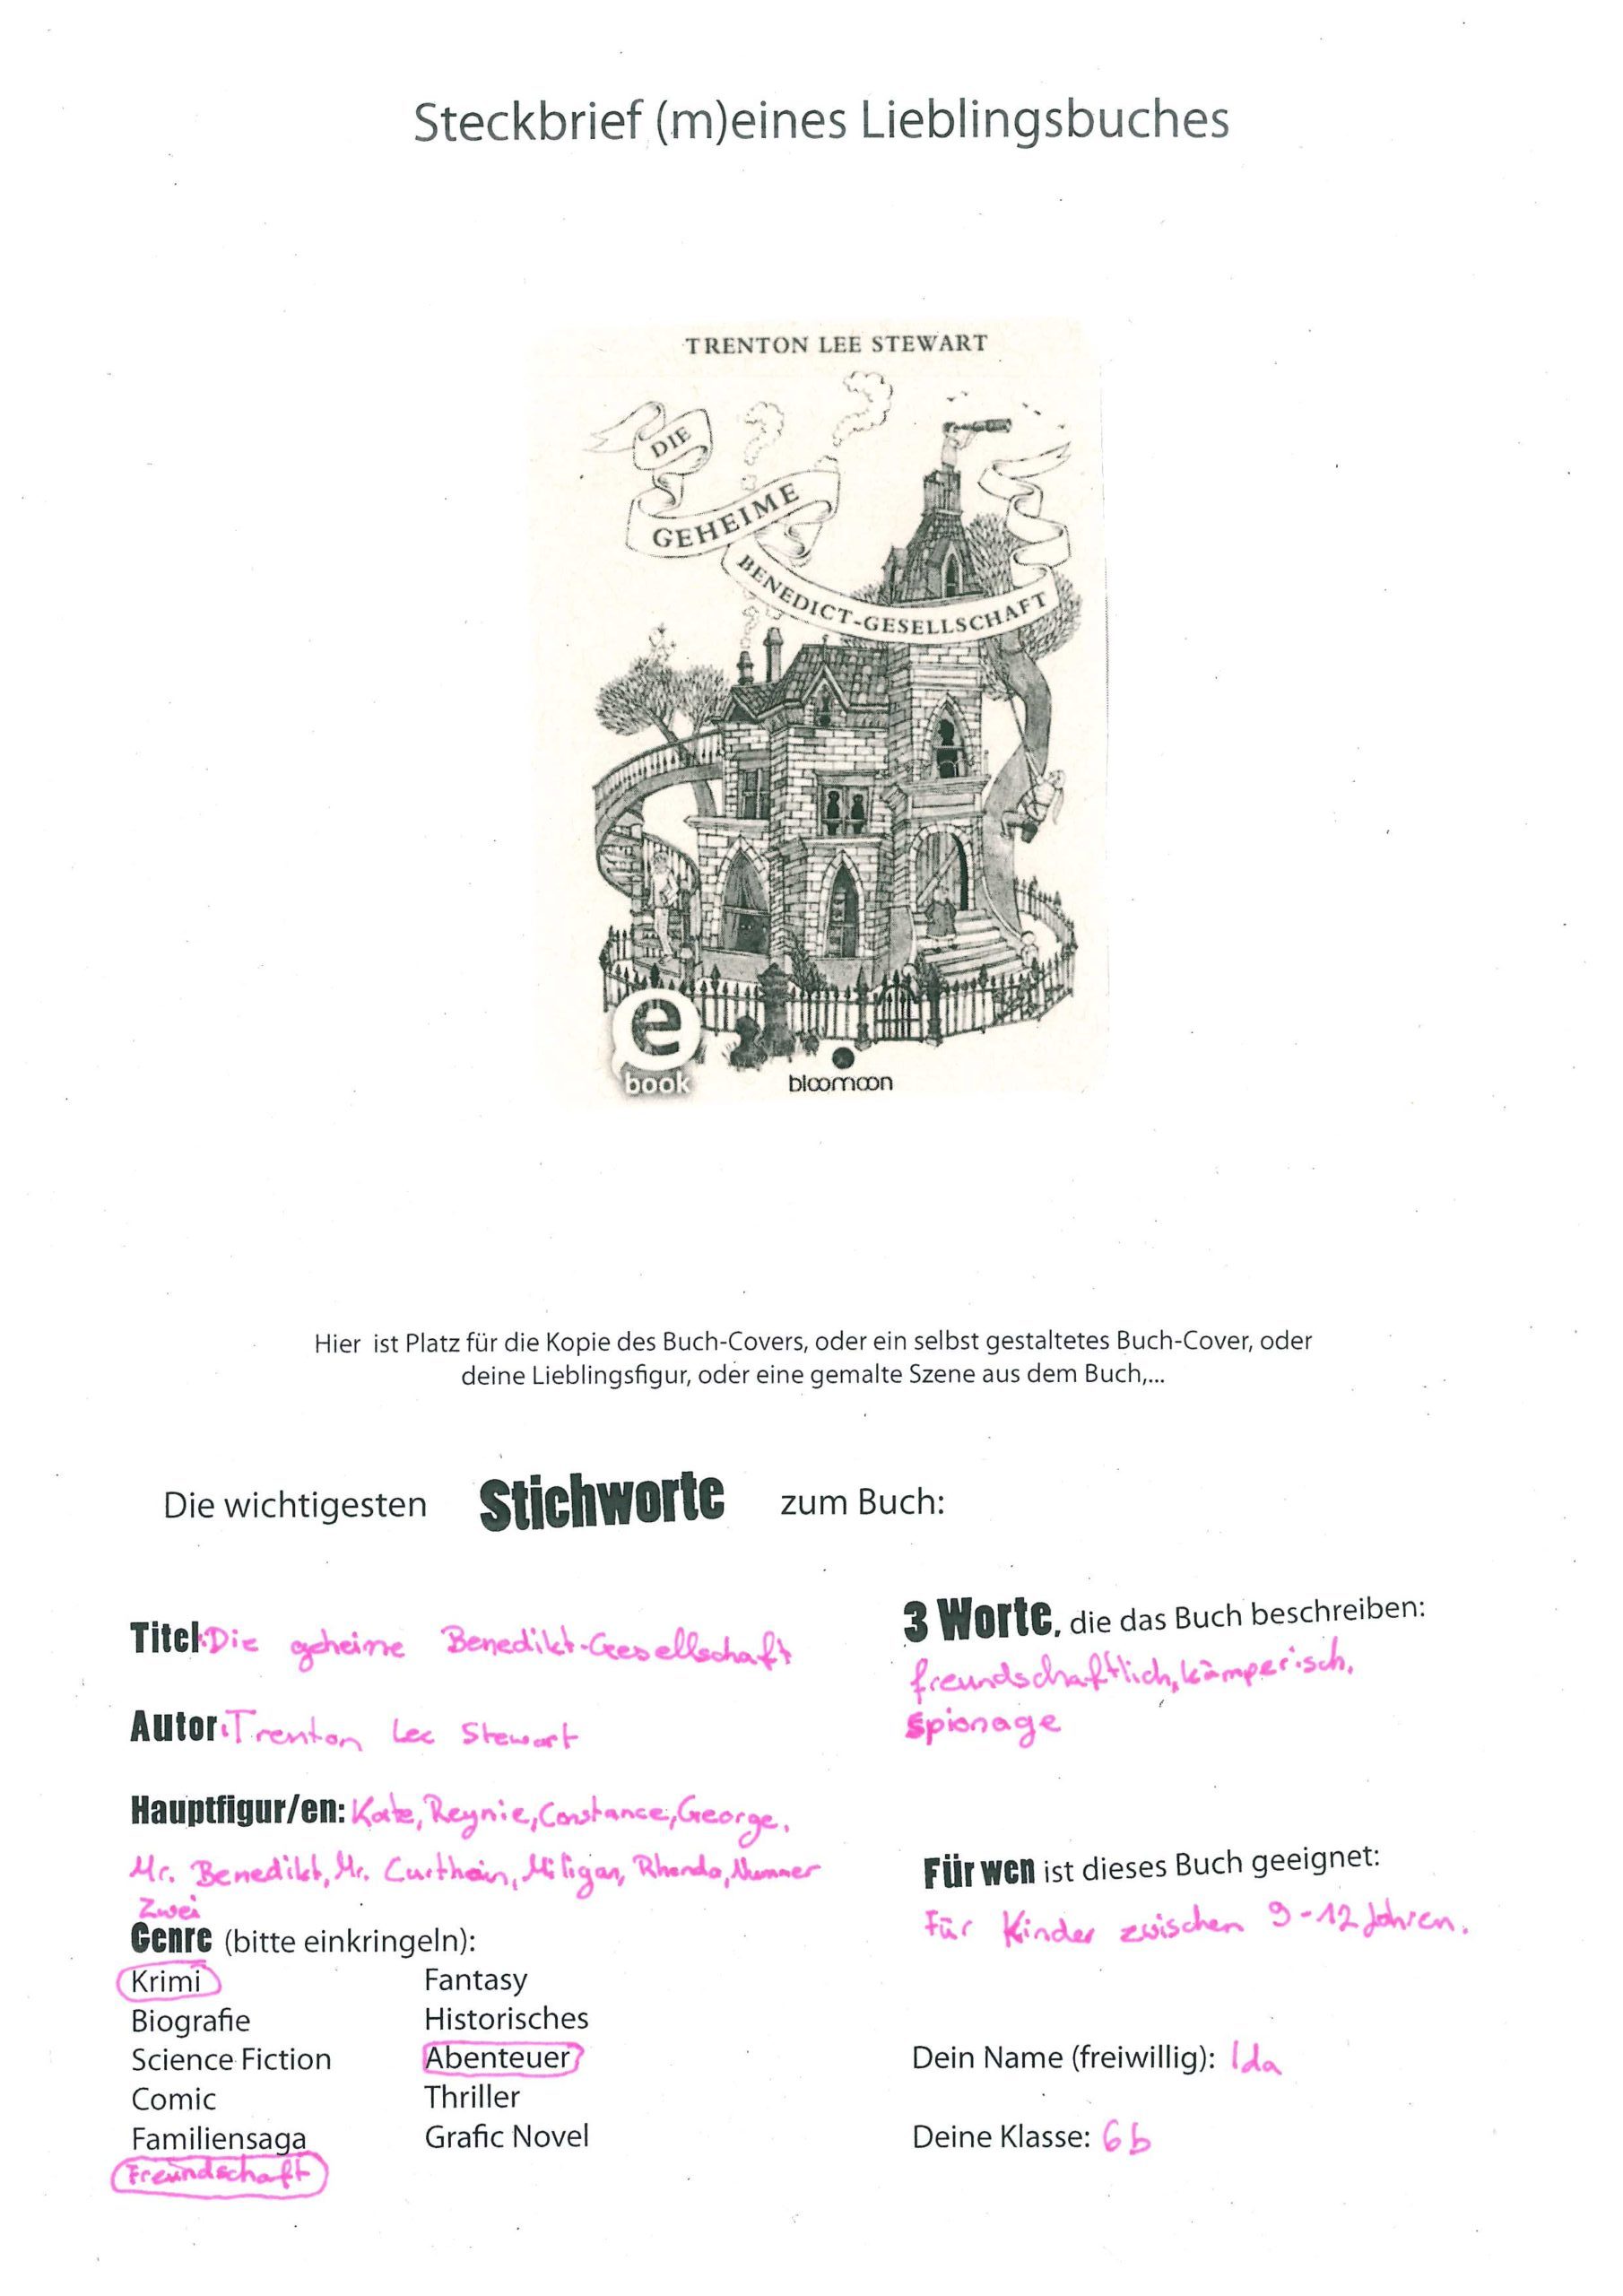 Steckbrief (m)eines Lieblingsbuches
TRENTON LEE STEWART
DIE
GEHEIME
BENEDICT-GESELLSCHAFT
e
book
bloomoon
Hier ist Platz für die Kopie des Buch-Covers, oder ein selbst gestaltetes Buch-Cover, oder
deine Lieblingsfigur, oder eine gemalte Szene aus dem Buch,...
Die wichtigesten Stichworte zum Buch:
Titel: Die geheime Benedikt-Gesellschaft
Autor: Trenton Lee Stewart
Hauptfigur/en: Kate, Reynie, Constance, George,
Mr. Benedikt, Mr. Curthain, Miligan, Rhonda, Nummer
Zwei
Genre (bitte einkringeln):
Krimi Fantasy
Biografie Historisches
Science Fiction Abenteuer
Comic Thriller
Familiensaga Grafic Novel
Freundschaft
3 Worte, die das Buch beschreiben:
freundschaftlich, kämperisch,
spionage
Für wen ist dieses Buch geeignet:
Für Kinder zwischen 9-12 Jahren.
Dein Name (freiwillig): Ida
Deine Klasse: 6b